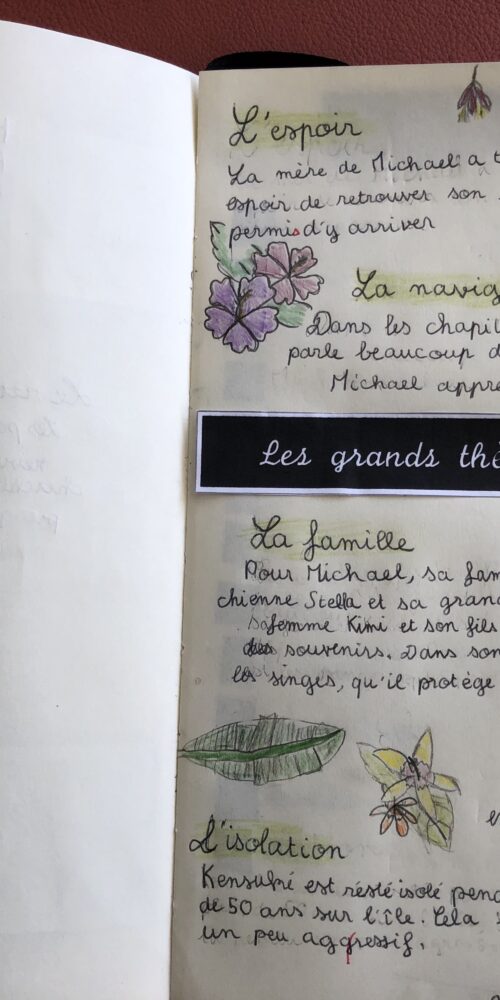 L'espoir
La mère de Michael a t
espoir de retrouver son
permis d'y arriver
La navig
Dans les chapit
parle beaucoup d
Michael appre
Les grands thè
La famille
Pour Michael, sa fam
chienne Stella et sa grand
sa femme Kimi et son fils
souvenirs. Dans son
les singes, qu'il protége
e
L'isolation
est résté isolé pend
de 50 ans sur l'île. Cela
un peu aggressif.